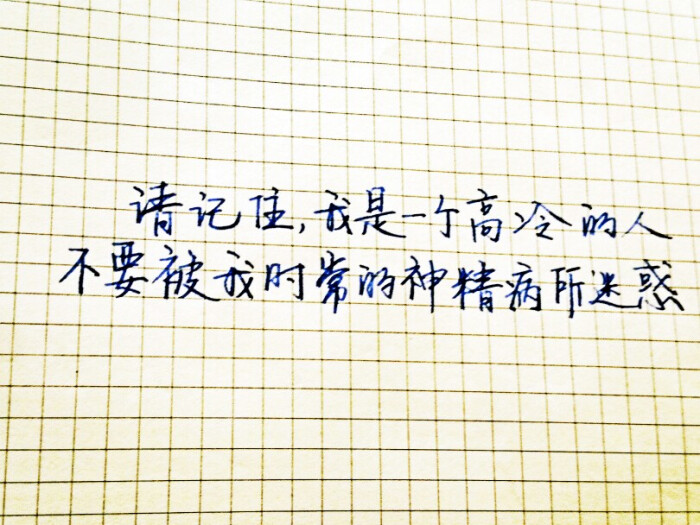 请记住,我是一个高冷的人
不要被我时常的神精病所迷惑